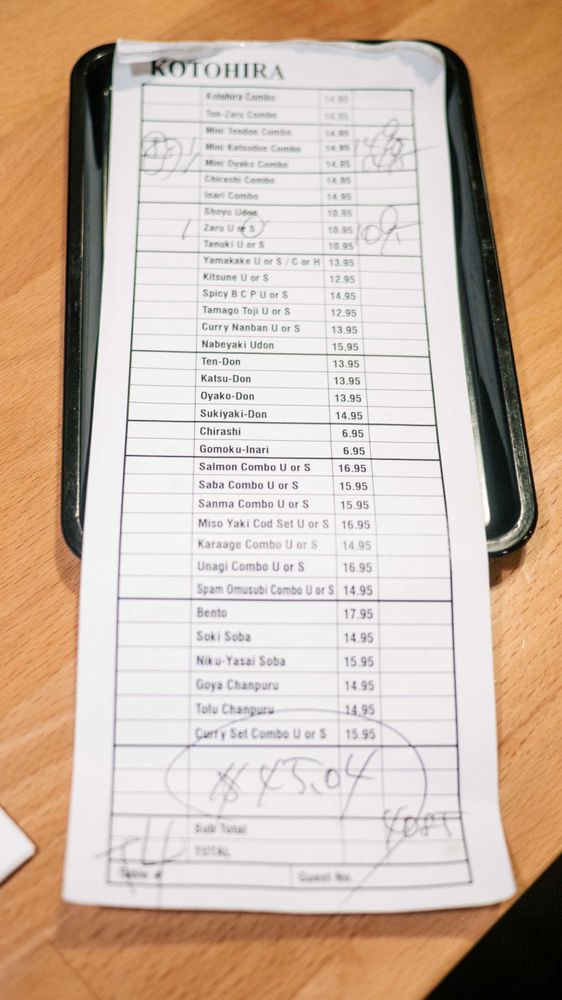 KOTOHIRA
Kotohira Combo 14.95
Ten-Zaru Combo 14.95
Mini Tendon Combo 14.95
Mini Katsudon Combo 14.95
Mini Oyako Combo 14.95
Chirashi Combo 14.95
Inari Combo 14.95
Shoyu Udon 10.95
1 Zaru U or S 10.95 10.95
Tanuki U or S 10.95
Yamakake U or S / C or H 13.95
Kitsune U or S 12.95
Spicy B C P U or S 14.95
Tamago Toji U or S 12.95
Curry Nanban U or S 13.95
Nabeyaki Udon 15.95
Ten-Don 13.95
Katsu-Don 13.95
Oyako-Don 13.95
Sukiyaki-Don 14.95
Chirashi 6.95
Gomoku-Inari 6.95
Salmon Combo U or S 16.95
Saba Combo U or S 15.95
Sanma Combo U or S 15.95
Miso Yaki Cod Set U or S 16.95
Karaage Combo U or S 14.95
Unagi Combo U or S 16.95
Spam Omusubi Combo U or S 14.95
Bento 17.95
Soki Soba 14.95
Niku-Yasai Soba 15.95
Goya Chanpuru 14.95
Tofu Chanpuru 14.95
Curry Set Combo U or S 15.95
$45.04
Sub Total 4085
TOTAL
T4
Table # Guest No.